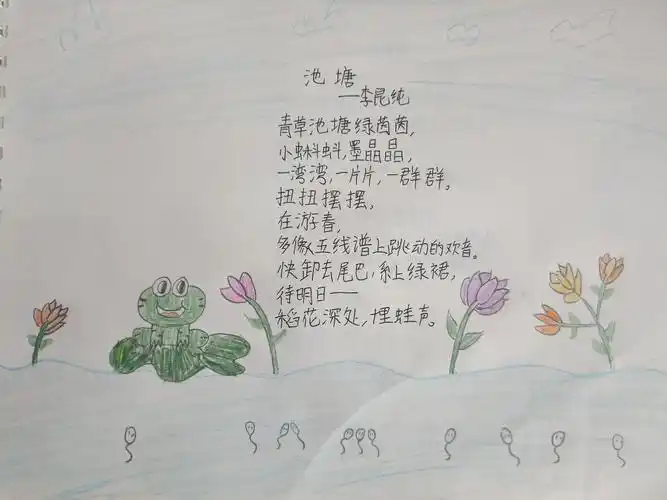 池塘
——李昆纯
青草池塘绿茵茵,
小蝌蚪,墨晶晶,
一湾湾,一片片,一群群。
扭扭摆摆,
在游春,
多像五线谱上跳动的欢音。
快卸去尾巴,系上绿裙,
待明日——
稻花深处,埋蛙声。